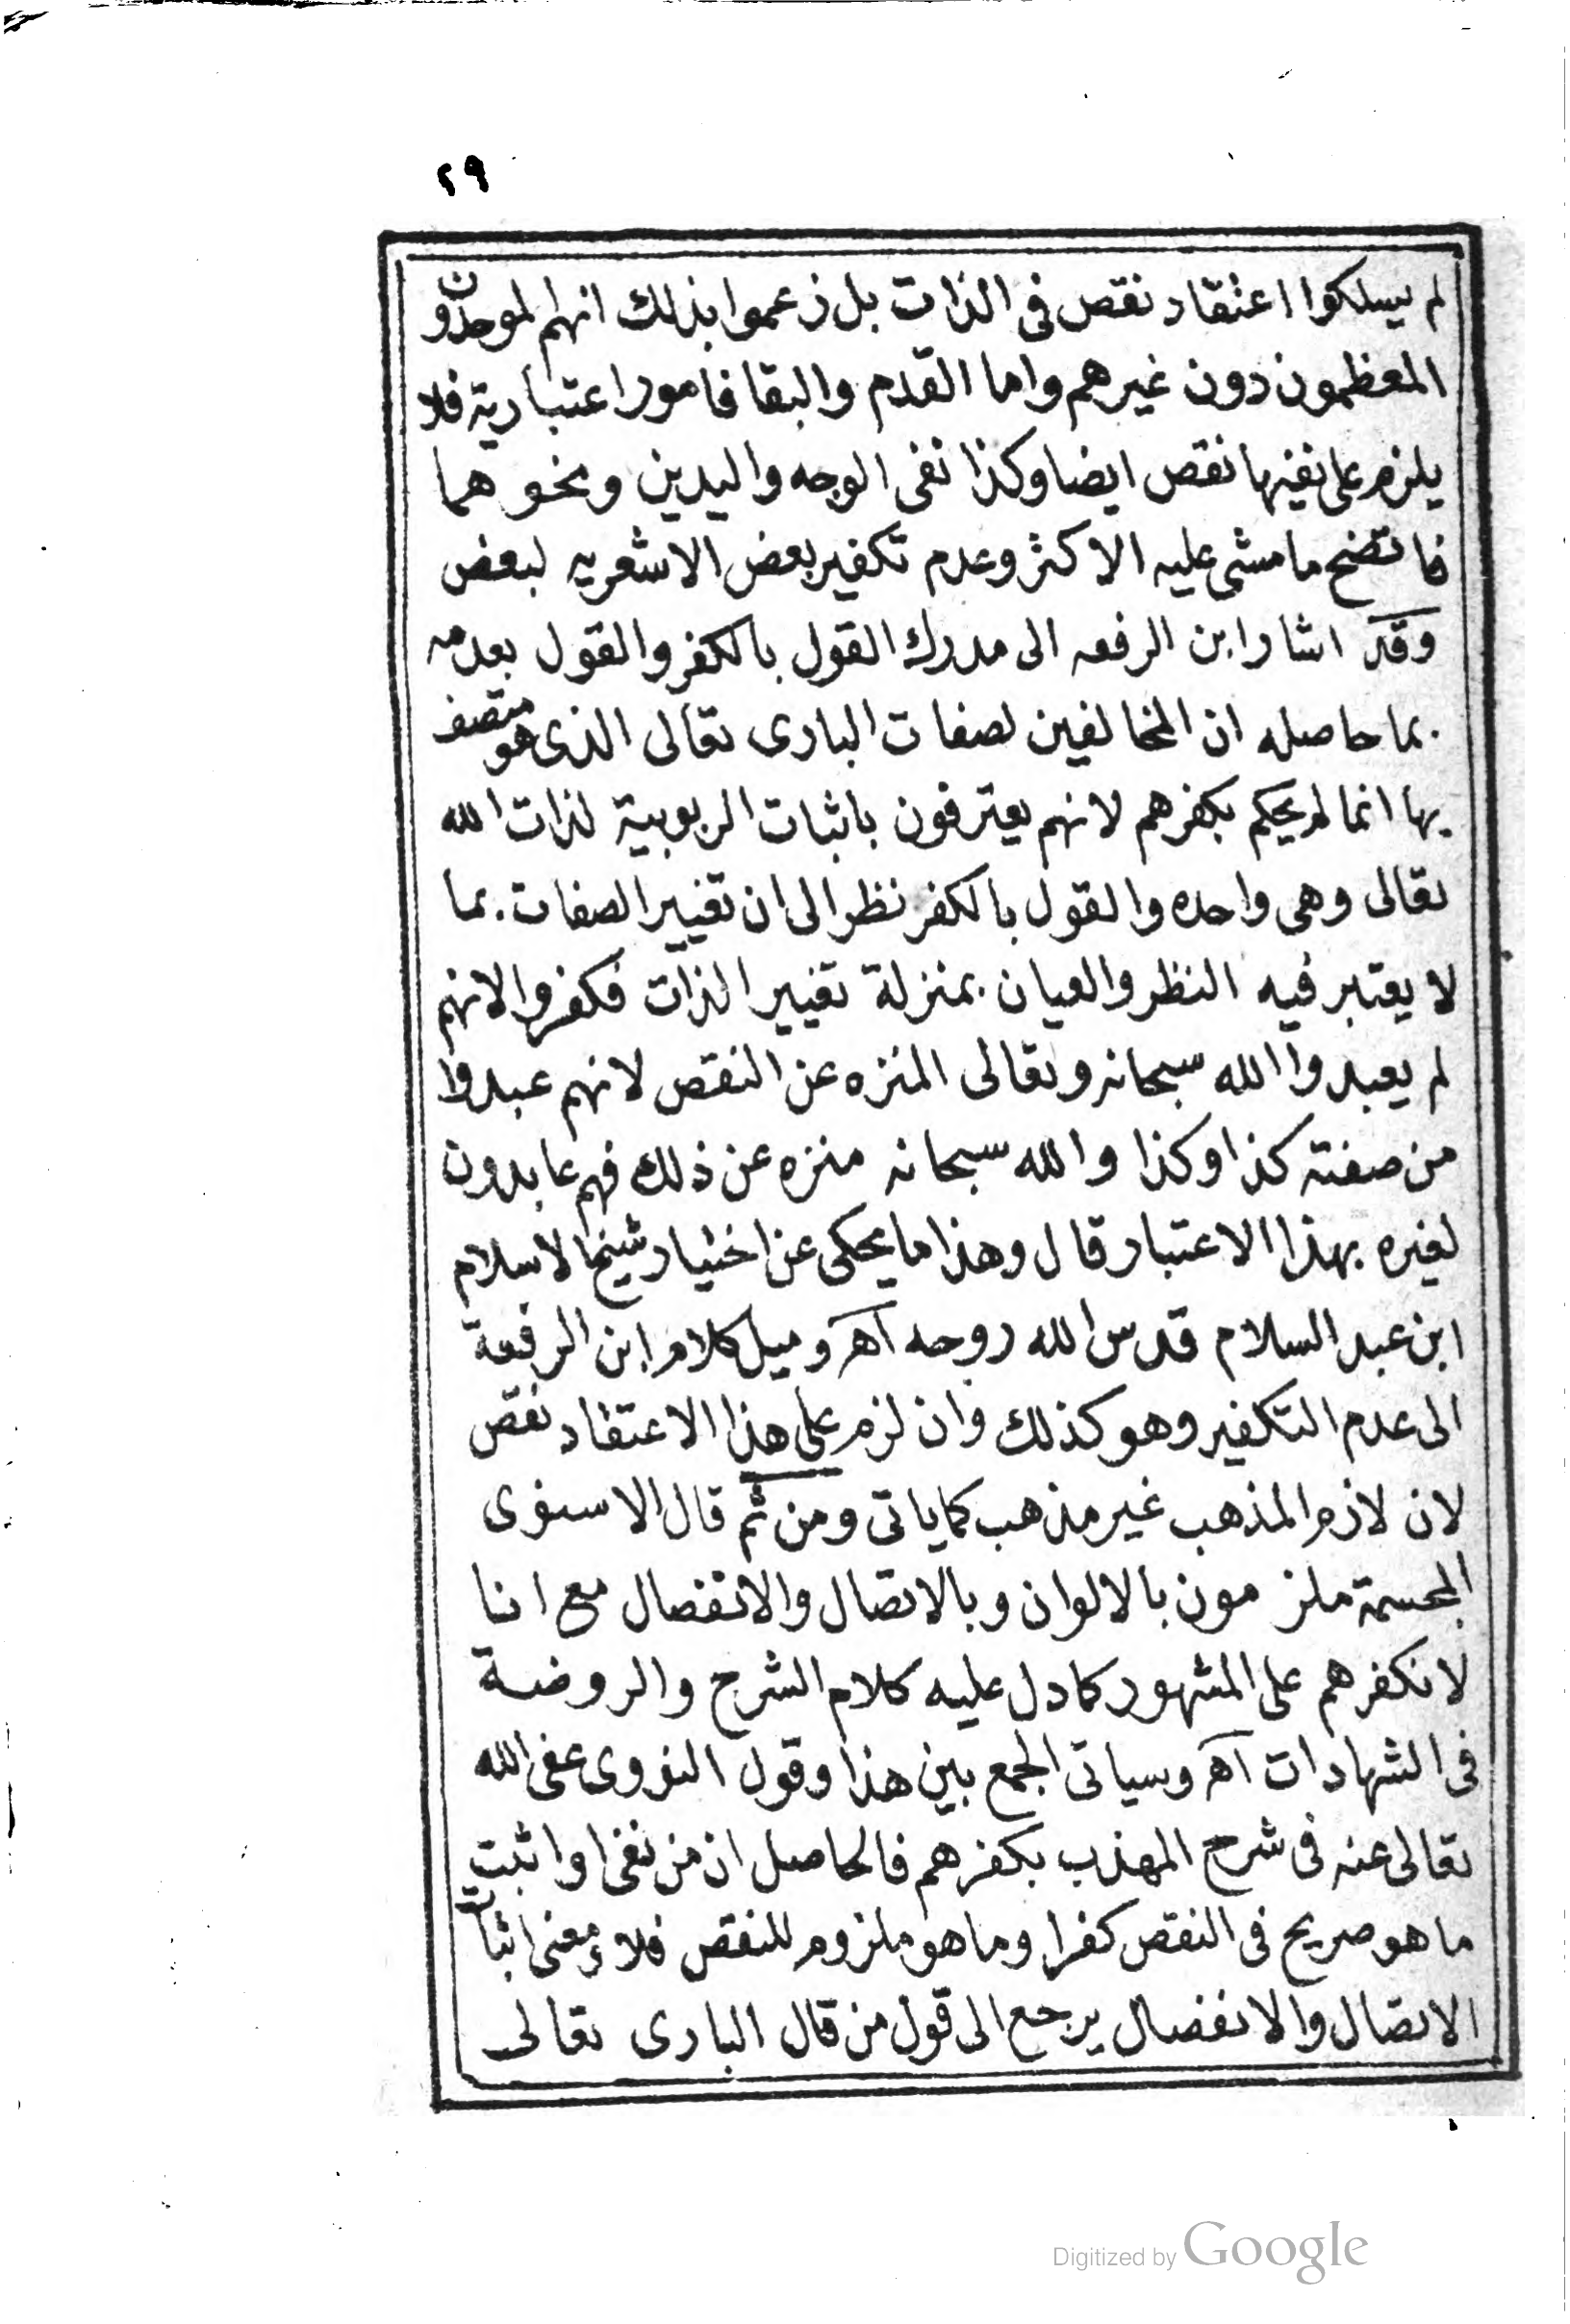 ٢٩
لم يسلكوا اعتقاد نقص فى الذات بل زعموا بذلك انهم الموحدون و
المعظمون دون غيرهم واما القدم والبقا فامور اعتبارية فلا
يلزم على نفيها نقص ايضا وكذا نفى الوجه واليدين ونحوهما
فاتضح ما مشى عليه الاكثر وعدم تكفير بعض الاشعريه لبعض
وقد اشار ابن الرفعه الى مدرك القول بالكفر والقول بعدمه
بما حاصله ان المخالفين لصفات البارى تعالى الذى هو متصف
بها انما لم يحكم بكفرهم لانهم يعترفون باثبات الربوبية لذات الله
تعالى وهى واحده والقول بالكفر نظر الى ان تغيير الصفات بما
لا يعتبر فيه النظر والعيان بمنزلة تغيير الذات فكفروا لانهم
لم يعبدوا الله سبحانه وتعالى المنزه عن النقص لانهم عبدوا
من صفته كذا وكذا والله سبحانه منزه عن ذلك فهم عابدون
لغيره بهذا الاعتبار قال وهذا ما يحكى عن اختيار شيخ الاسلام
ابن عبد السلام قدس الله روحه اهـ وميل كلام ابن الرفعة
الى عدم التكفير وهو كذلك وان لزم على هذا الاعتقاد نقص
لان لازم المذهب غير مذهب كما ياتى ومن ثم قال الاسنوى
المجسمة ملزمون بالالوان وبالاتصال والانفصال مع انا
لا نكفرهم على المشهور كما دل عليه كلام الشرح والروضة
فى الشهادات اهـ وسياتى الجمع بين هذا وقول النووى عفى الله
تعالى عنه فى شرح المهذب بكفرهم فالحاصل ان من نفى او اثبت
ما هو صريح فى النقص كفر او ما هو ملزوم للنقص فلا ومعنى اثبات
الاتصال والانفصال يرجع الى قول من قال البارى تعالى
Digitized by Google